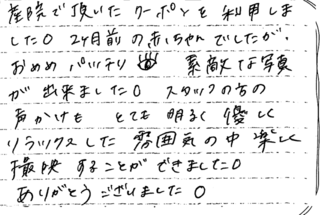 産院で頂いたクーポンを利用しま
した。2ヶ月前の赤ちゃんでしたが、
おめめパッチリ 素敵な写真
が出来ました。スタッフの方の
声かけもとても明るく優しく
リラックスした雰囲気の中楽しく
撮映することができました。
ありがとうございました。